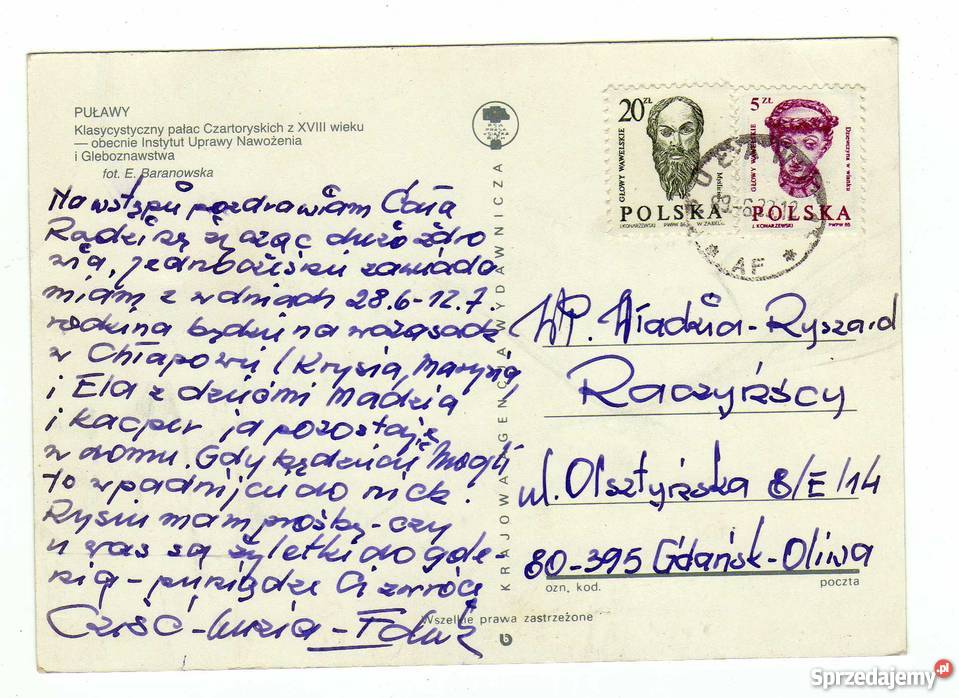 PUŁAWY
Klasycystyczny pałac Czartoryskich z XVIII wieku
— obecnie Instytut Uprawy Nawożenia
i Gleboznawstwa
fot. E. Baranowska
Na wstępie pozdrawiam Całą
Rodzinę życząc dużo zdro
wia, jednocześnie zawiada
miam z w dniach 28.6-12.7.
rodzina będzie na wczasach
w Chłapowie (Krysia, Maryna,
i Ela z dziećmi Madzia
i Kacper ja pozostaję
w domu. Gdy będziecie mogli
to wpadnijcie do nich.
Rysiu mam prośbę - czy
u was są żyletki do gole-
nia - pieniądze Ci zwrócę
Cześć -
KRAJOWA AGENCJA WYDAWNICZA
20 ZŁ
GŁOWY WAWELSKIE
POLSKA
J. KONARZEWSKI PWPW 86
5 ZŁ
GŁOWY WAWELSKIE
Dziewczyna w wianku
POLSKA
J. KONARZEWSKI PWPW 85
AF
WP. Władzia - Ryszard
Raczyńscy
ul. Olsztyńska 8/E/14
80-395 Gdańsk-Oliwa
ozn. kod. poczta
Wszelkie prawa zastrzeżone
Sprzedajemy.pl